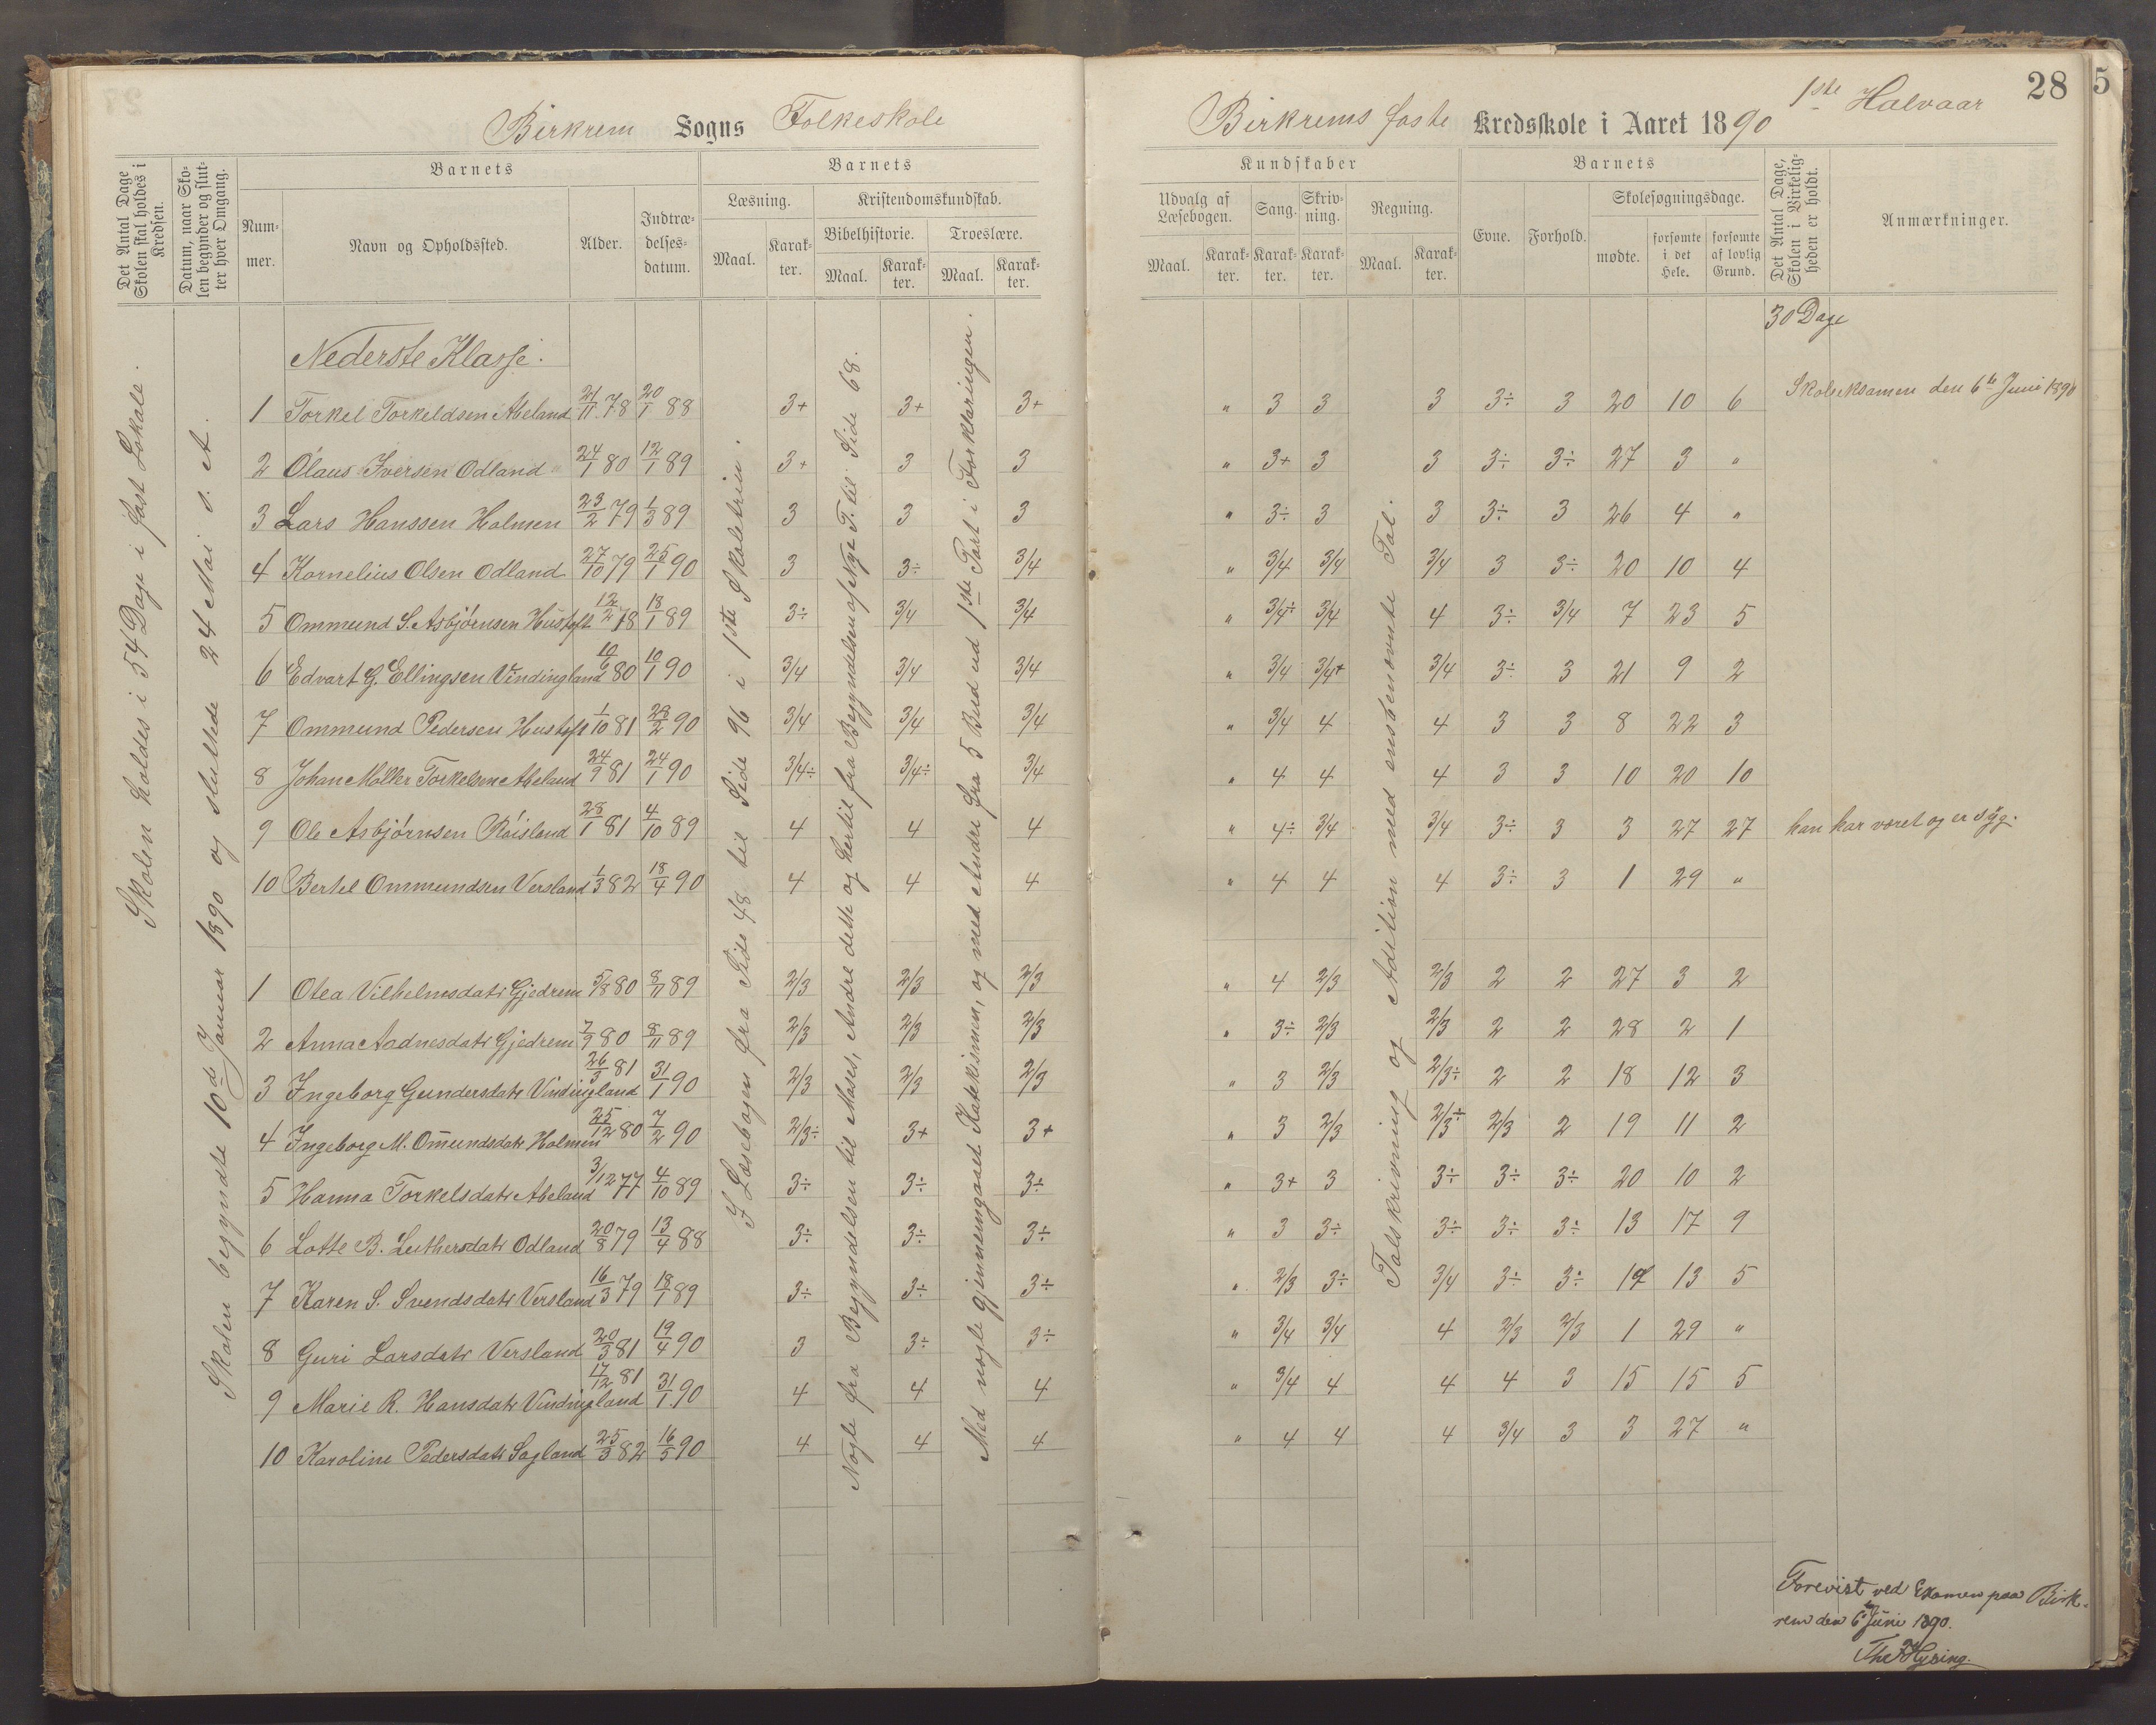 Birkrem Sogns Folkeskole
Det Antal Dage Skolen skal holdes i Kredsen.
Datum, naar Skolen begynder og slutter hver Omgang.
Barnets
Nummer.
Navn og Opholdssted.
Alder.
Indtrædelsesdatum.
Barnets
Læsning.
Kristendomskundskab.
Bibelhistorie.
Troeslære.
Maal. Karakter. Maal. Karakter. Maal. Karakter.
Skolen holdes i 54 Dage i fast Lokale.
Skolen begyndte 10de Januar 1890 og sluttede 24 Mai s. A.
I Læsebogen fra Side 48 til Side 96 i 1ste Skoletrin.
Nogle fra Begyndelsen til Moses, Andre dette og hertil fra Begyndelsen af Nye T. til Side 68.
Med nogle gjennemgaaet Katekismen, og med Andre fra 5 Bud ud 1ste Part i Forklaringen.
Nederste Klasse.
1 Torkel Torkeldsen Abeland 21/11 78 20/1 88 3+ 3+ 3+
2 Olaus Iversen Odland 24/1 80 12/1 89 3+ 3 3
3 Lars Hanssen Holmen 23/2 79 1/3 89 3 3 3
4 Kornelius Olsen Odland 27/10 79 25/1 90 3 3÷ 3/4
5 Ommund S. Asbjørnsen Hustoft 12/2 78 18/1 89 3÷ 3/4 3/4
6 Edvart G. Ellingsen Vindingland 10/6 80 10/1 90 3/4 3/4 3/4
7 Ommund Pedersen Hustoft 1/10 81 28/2 90 3/4 3/4 3/4
8 Johan Molker Torkelsen Abeland 24/9 81 24/1 90 3/4÷ 3/4÷ 3/4
9 Ole Asbjørnsen Röisland 28/1 81 4/10 89 4 4 4
10 Bertel Ommundsen Versland 1/3 82 18/4 90 4 4 4
1 Olea Vilhelmsdatr Gjedrem 5/8 80 8/11 89 2/3 2/3 2/3
2 Anna Aadnesdatr Gjedrem 7/9 80 8/11 89 2/3 2/3 2/3
3 Ingeborg Gundersdatr Vindingland 26/3 81 31/1 90 2/3 2/3 2/3
4 Ingeborg M. Omundsdatr Holmen 25/12 80 7/2 90 2/3÷ 3+ 3+
5 Hanna Torkelsdatr Abeland 3/12 77 4/10 89 3÷ 3÷ 3÷
6 Lotte B. Luthersdatr Odland 20/8 79 13/4 88 3÷ 3÷ 3÷
7 Karen S. Svendsdatr Versland 16/3 79 18/1 89 3÷ 3÷ 3÷
8 Guri Larsdatr Versland 20/3 81 19/4 90 3 3÷ 3÷
9 Marie R. Hansdatr Vindingland 17/12 81 31/1 90 4 4 4
10 Karoline Pedersdatr Sagland 25/3 82 16/5 90 4 4 4
28
5
Birkrems faste Kredsskole i Aaret 1890 1ste Halvaar
Kundskaber
Udvalg af Læsebogen.
Sang.
Skrivning.
Regning.
Barnets
Evne.
Forhold.
Skolesøgningsdage.
mødte.
forsømte i det Hele.
forsømte af lovlig Grund.
Det Antal Dage, Skolen i Virkeligheden er holdt.
Anmærkninger.
Maal. Karakter. Karakter. Karakter. Maal. Karakter.
Talskrivning og Adition med ensbenævnte Tal.
30 Dage
" 3 3 3 3÷ 3 20 10 6 Skoleeksamen den 6te Juni 1890
" 3+ 3 3 3÷ 3÷ 27 3 "
" 3÷ 3 3 3÷ 3 26 4 "
" 3/4 3/4 3/4 3 3÷ 20 10 4
" 3/4÷ 3/4 4 3÷ 3/4 7 23 5
" 3/4 3/4+ 3/4 3÷ 3 21 9 2
" 3/4 4 4 3 3 8 22 3
" 4 4 4 3 3 10 20 10
" 4÷ 3/4 3/4 3÷ 3 3 27 27 han har været og er syg.
" 4 4 4 3÷ 3 1 29 "
" 4 2/3 2/3 2 2 27 3 2
" 3÷ 2/3 2/3 2 2 28 2 1
" 3 2/3 2/3÷ 2 2 18 12 3
" 3 2/3 2/3÷ 2/3 2 19 11 2
" 3+ 3 3÷ 3÷ 3÷ 20 10 2
" 3 3÷ 3÷ 3÷ 3÷ 13 17 9
" 2/3 3÷ 3/4 3÷ 3÷ 17 13 5
" 3/4 3/4 4 2/3 2/3 1 29 "
" 3/4 4 4 4 3 15 15 5
" 4 4 4 3/4 3 3 27 "
Forevist ved Examen paa Birk-
rem den 6te Juni 1890.